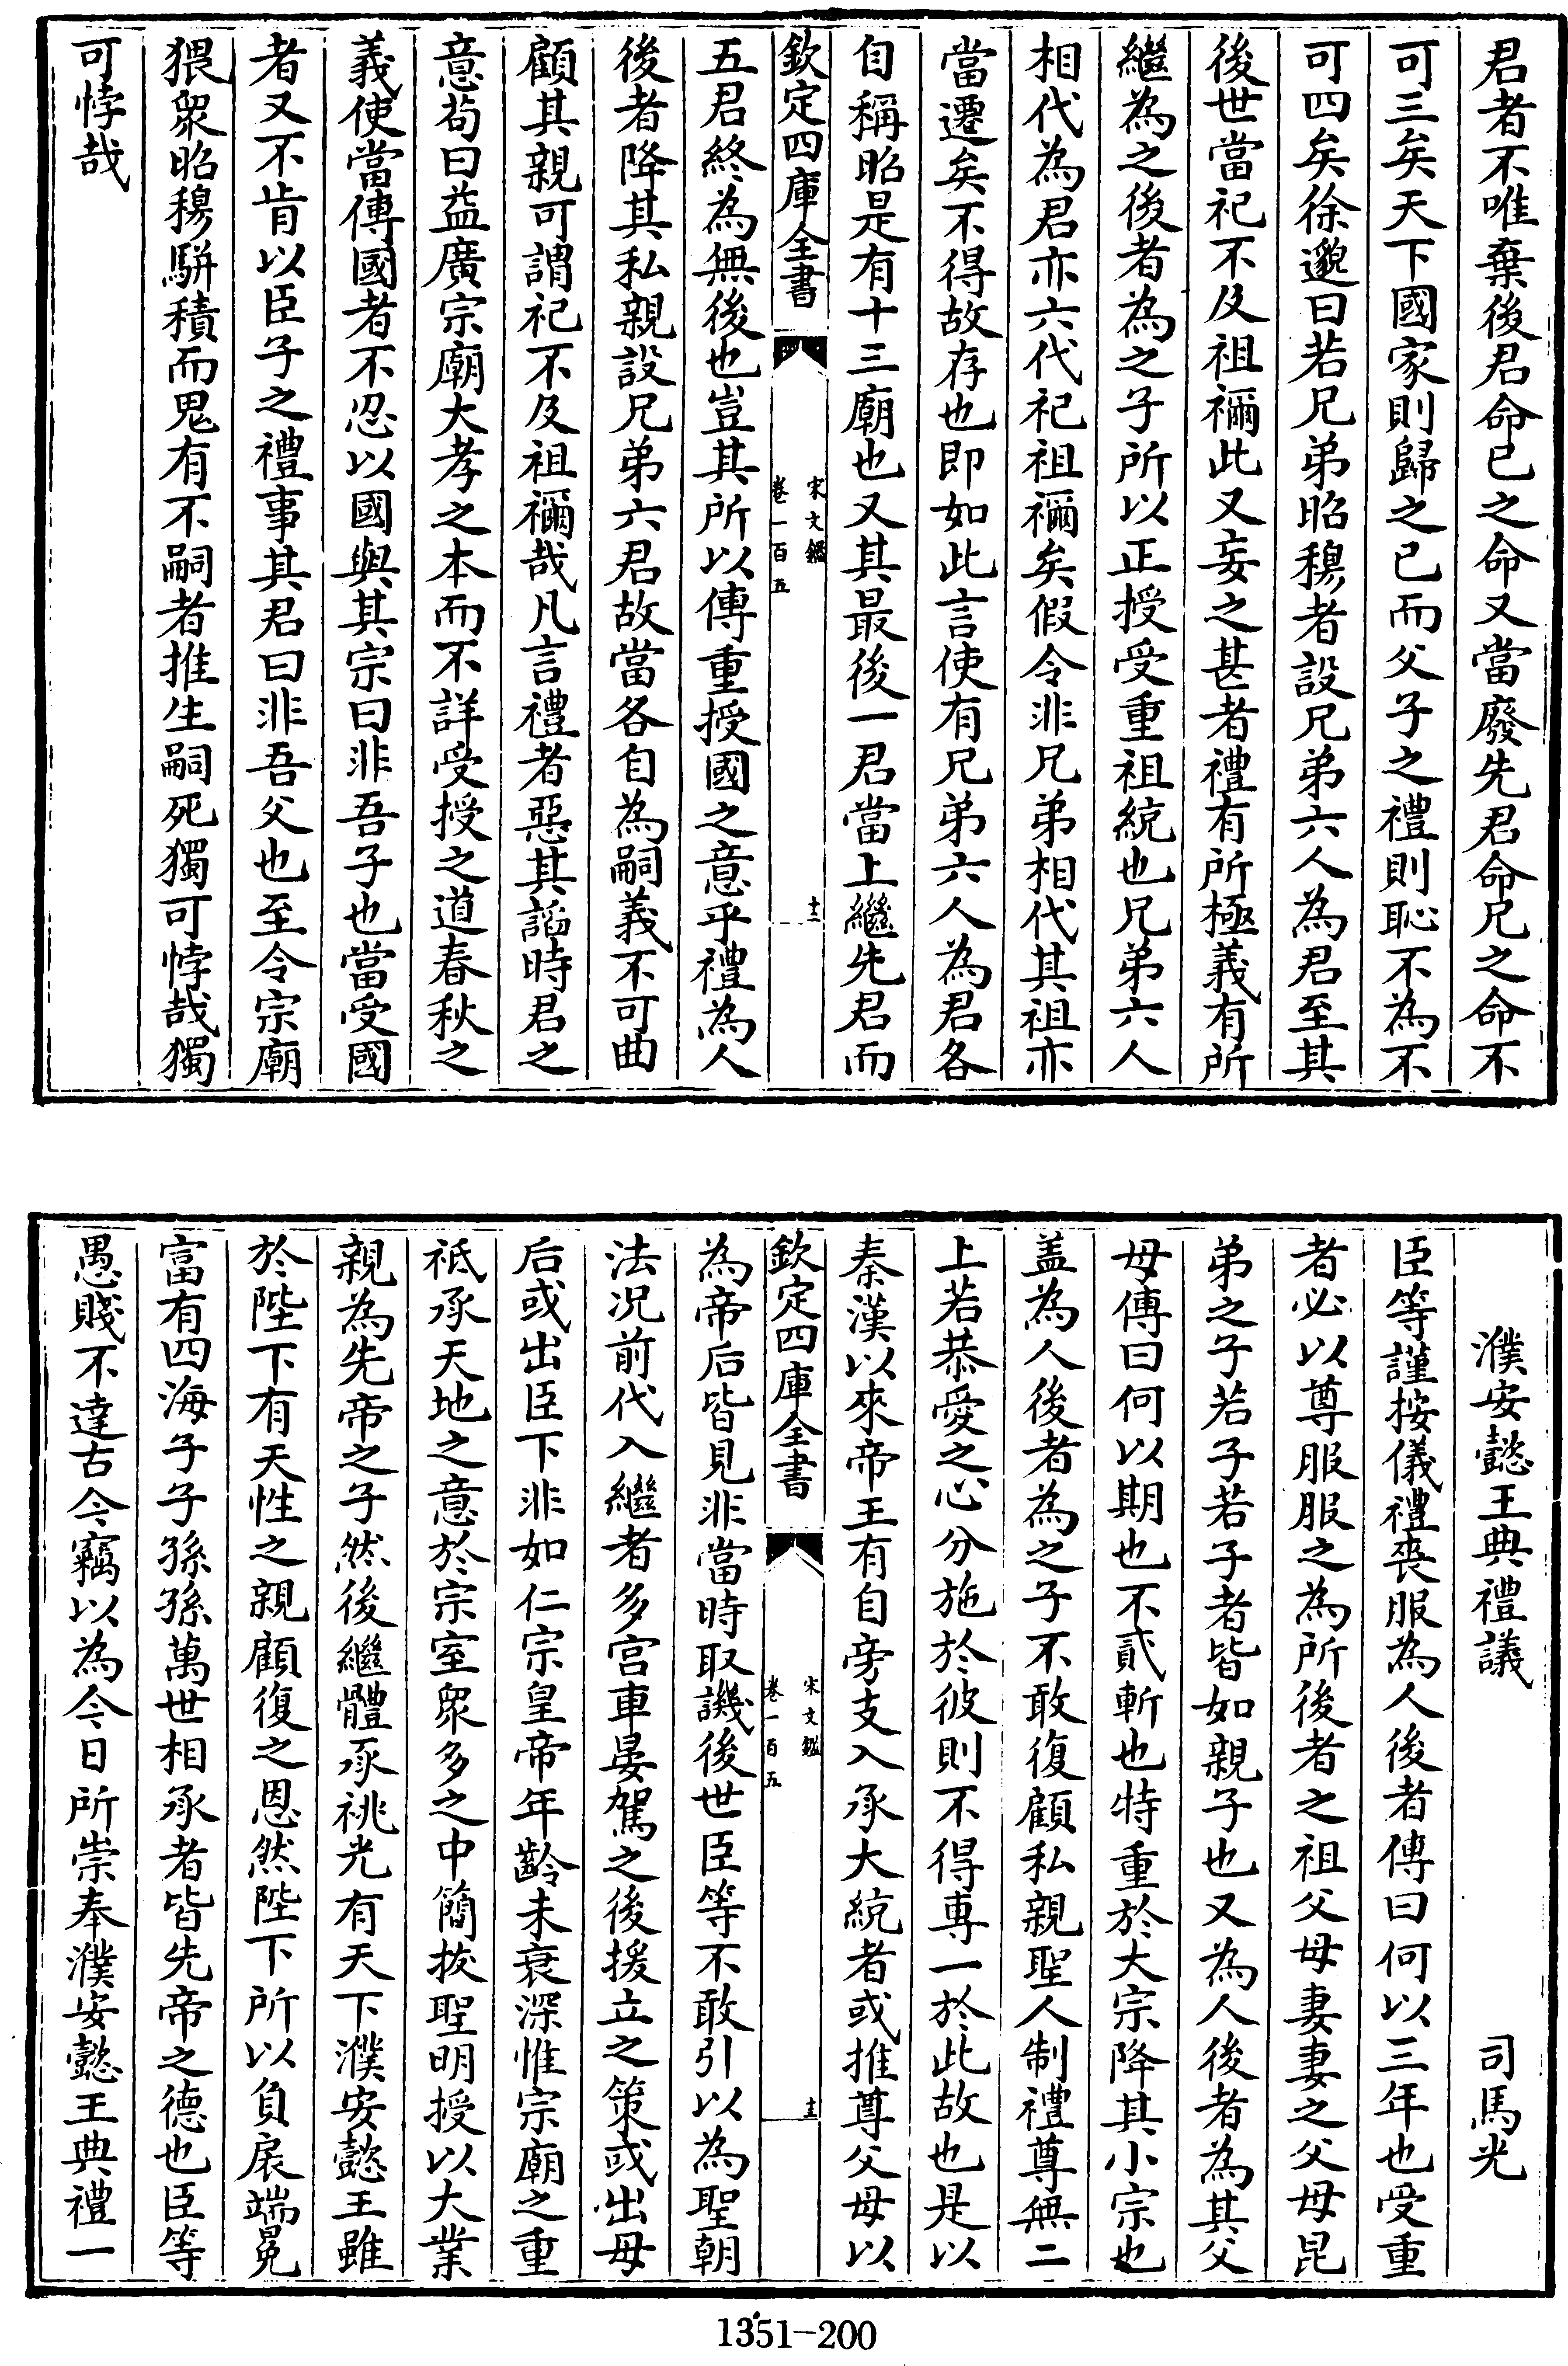 君者不唯棄後君命已之命又當廢先君命兄之命不
可三矣天下國家則歸之已而父子之禮則恥不為不
可四矣徐邈曰若兄弟昭穆者設兄弟六人為君至其
後世當祀不及祖禰此又妄之甚者禮有所極義有所
繼為之後者為之子所以正授受重祖統也兄弟六人
相代為君亦六代祀祖禰矣假令非兄弟相代其祖亦
當遷矣不得故存也即如此言使有兄弟六人為君各
自稱昭是有十三廟也又其最後一君當上繼先君而
欽定四庫全書
宋文鑑
卷一百五
十二
五君終為無後也豈其所以傳重授國之意乎禮為人
後者降其私親設兄弟六君故當各自為嗣義不可曲
顧其親可謂祀不及祖禰哉凡言禮者惡其諂時君之
意苟曰益廣宗廟大孝之本而不詳受授之道春秋之
義使當傳國者不忍以國與其宗曰非吾子也當受國
者又不肯以臣子之禮事其君曰非吾父也至令宗廟
猥衆昭穆駢積而鬼有不嗣者推生嗣死獨可悖哉獨
可悖哉
濮安懿王典禮議 司馬光
臣等謹按儀禮喪服為人後者傳曰何以三年也受重
者必以尊服服之為所後者之祖父母妻妻之父母昆
弟之子若子若子者皆如親子也又為人後者為其父
母傳曰何以期也不貳斬也特重於大宗降其小宗也
盖為人後者為之子不敢復顧私親聖人制禮尊無二
上若恭愛之心分施於彼則不得專一於此故也是以
秦漢以來帝王有自旁支入承大統者或推尊父母以
欽定四庫全書
宋文鑑
卷一百五
十三
為帝后皆見非當時取譏後世臣等不敢引以為聖朝
法况前代入繼者多宮車晏駕之後援立之策或出母
后或出臣下非如仁宗皇帝年齡未衰深惟宗廟之重
祗承天地之意於宗室衆多之中簡拔聖明授以大業
親為先帝之子然後繼體承祧光有天下濮安懿王雖
於陛下有天性之親顧復之恩然陛下所以負扆端冕
富有四海子子孫孫萬世相承者皆先帝之德也臣等
愚賤不達古今竊以為今日所崇奉濮安懿王典禮一
1351-200